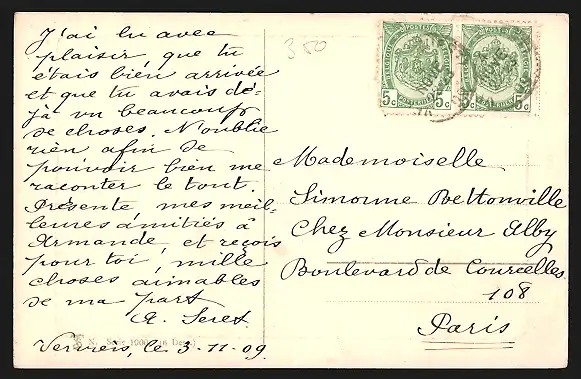 J'ai lu avec
plaisir que tu
étais bien arrivée
et que tu avais dé-
jà vu beaucoup
de choses. N'oublie
rien afin de
pouvoir bien me
raconter le tout.
Présente mes meil-
leures amitiés à
Armande, et reçois
pour toi, mille
choses aimables
de ma part
A. Seret
Verviers, le 3-11-09
350
5c 5c 5c 5c
Mademoiselle
Simonne Bettonville
Chez Monsieur Alby
Boulevard de Courcelles
108
Paris